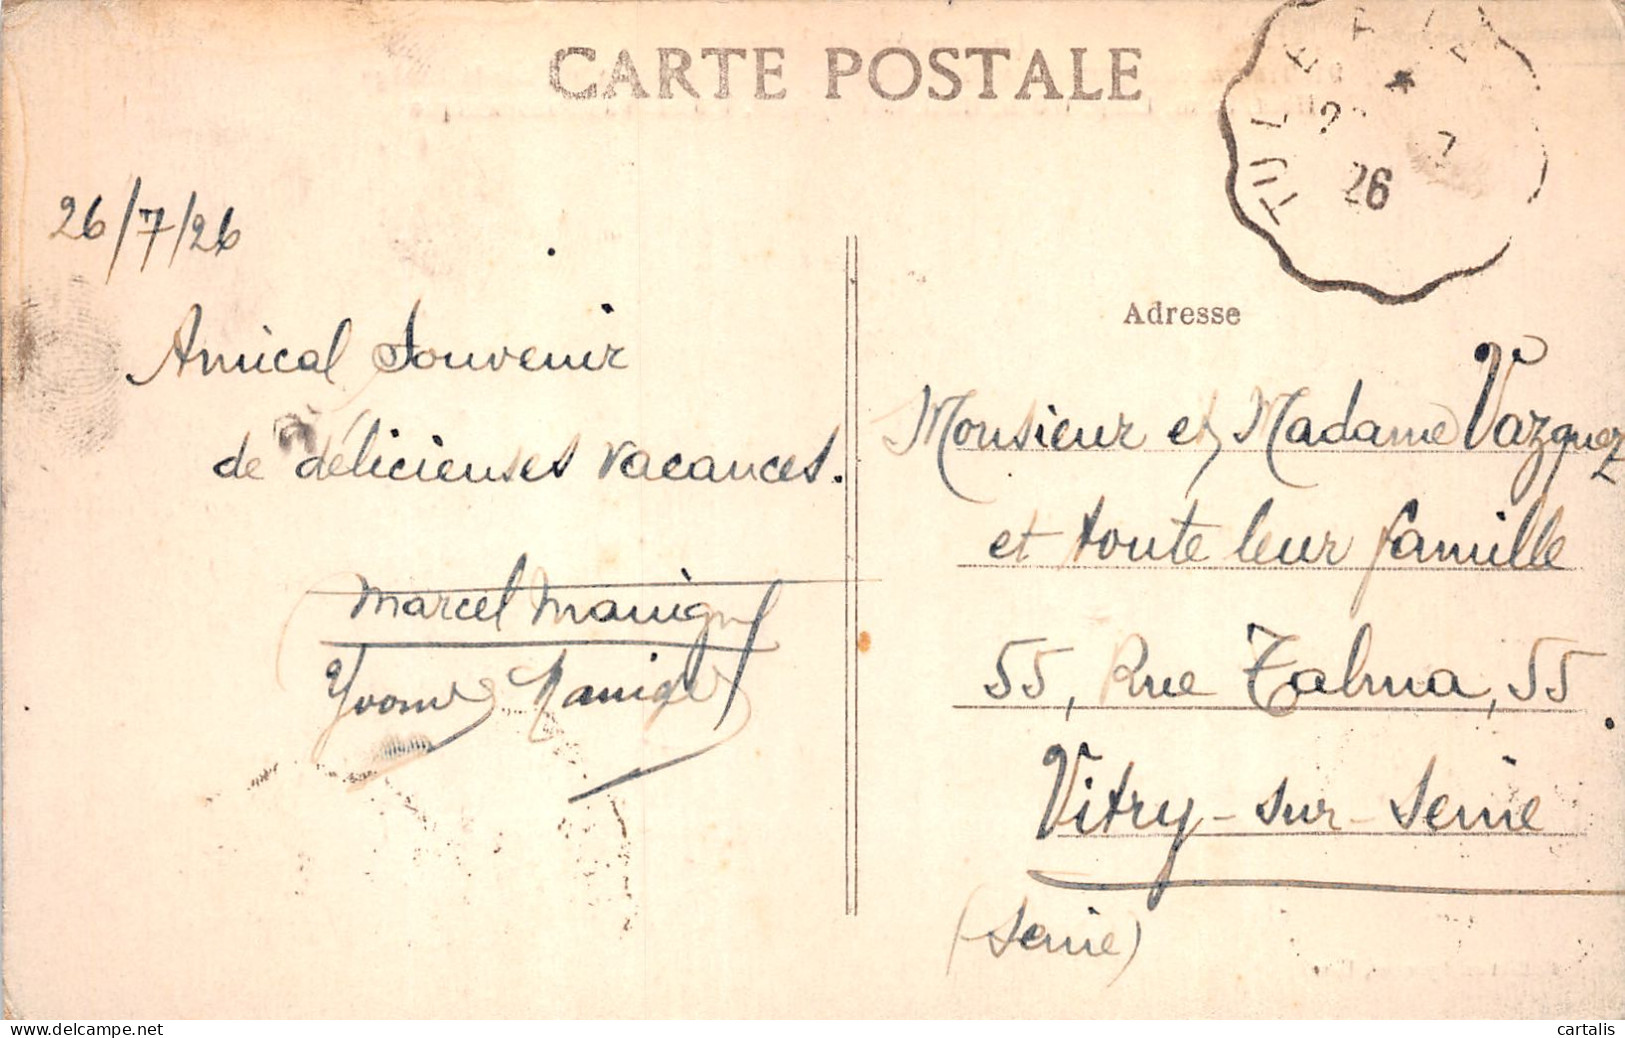 CARTE POSTALE
TULLE
26
26/7/26
Amical Souvenir
de délicieuses vacances.
Marcel
Yvonne
Adresse
Monsieur et Madame Vazquez
et toute leur famille
55, Rue Talma, 55
Vitry-sur-Seine
(Seine)
delcampe.net
cartalis